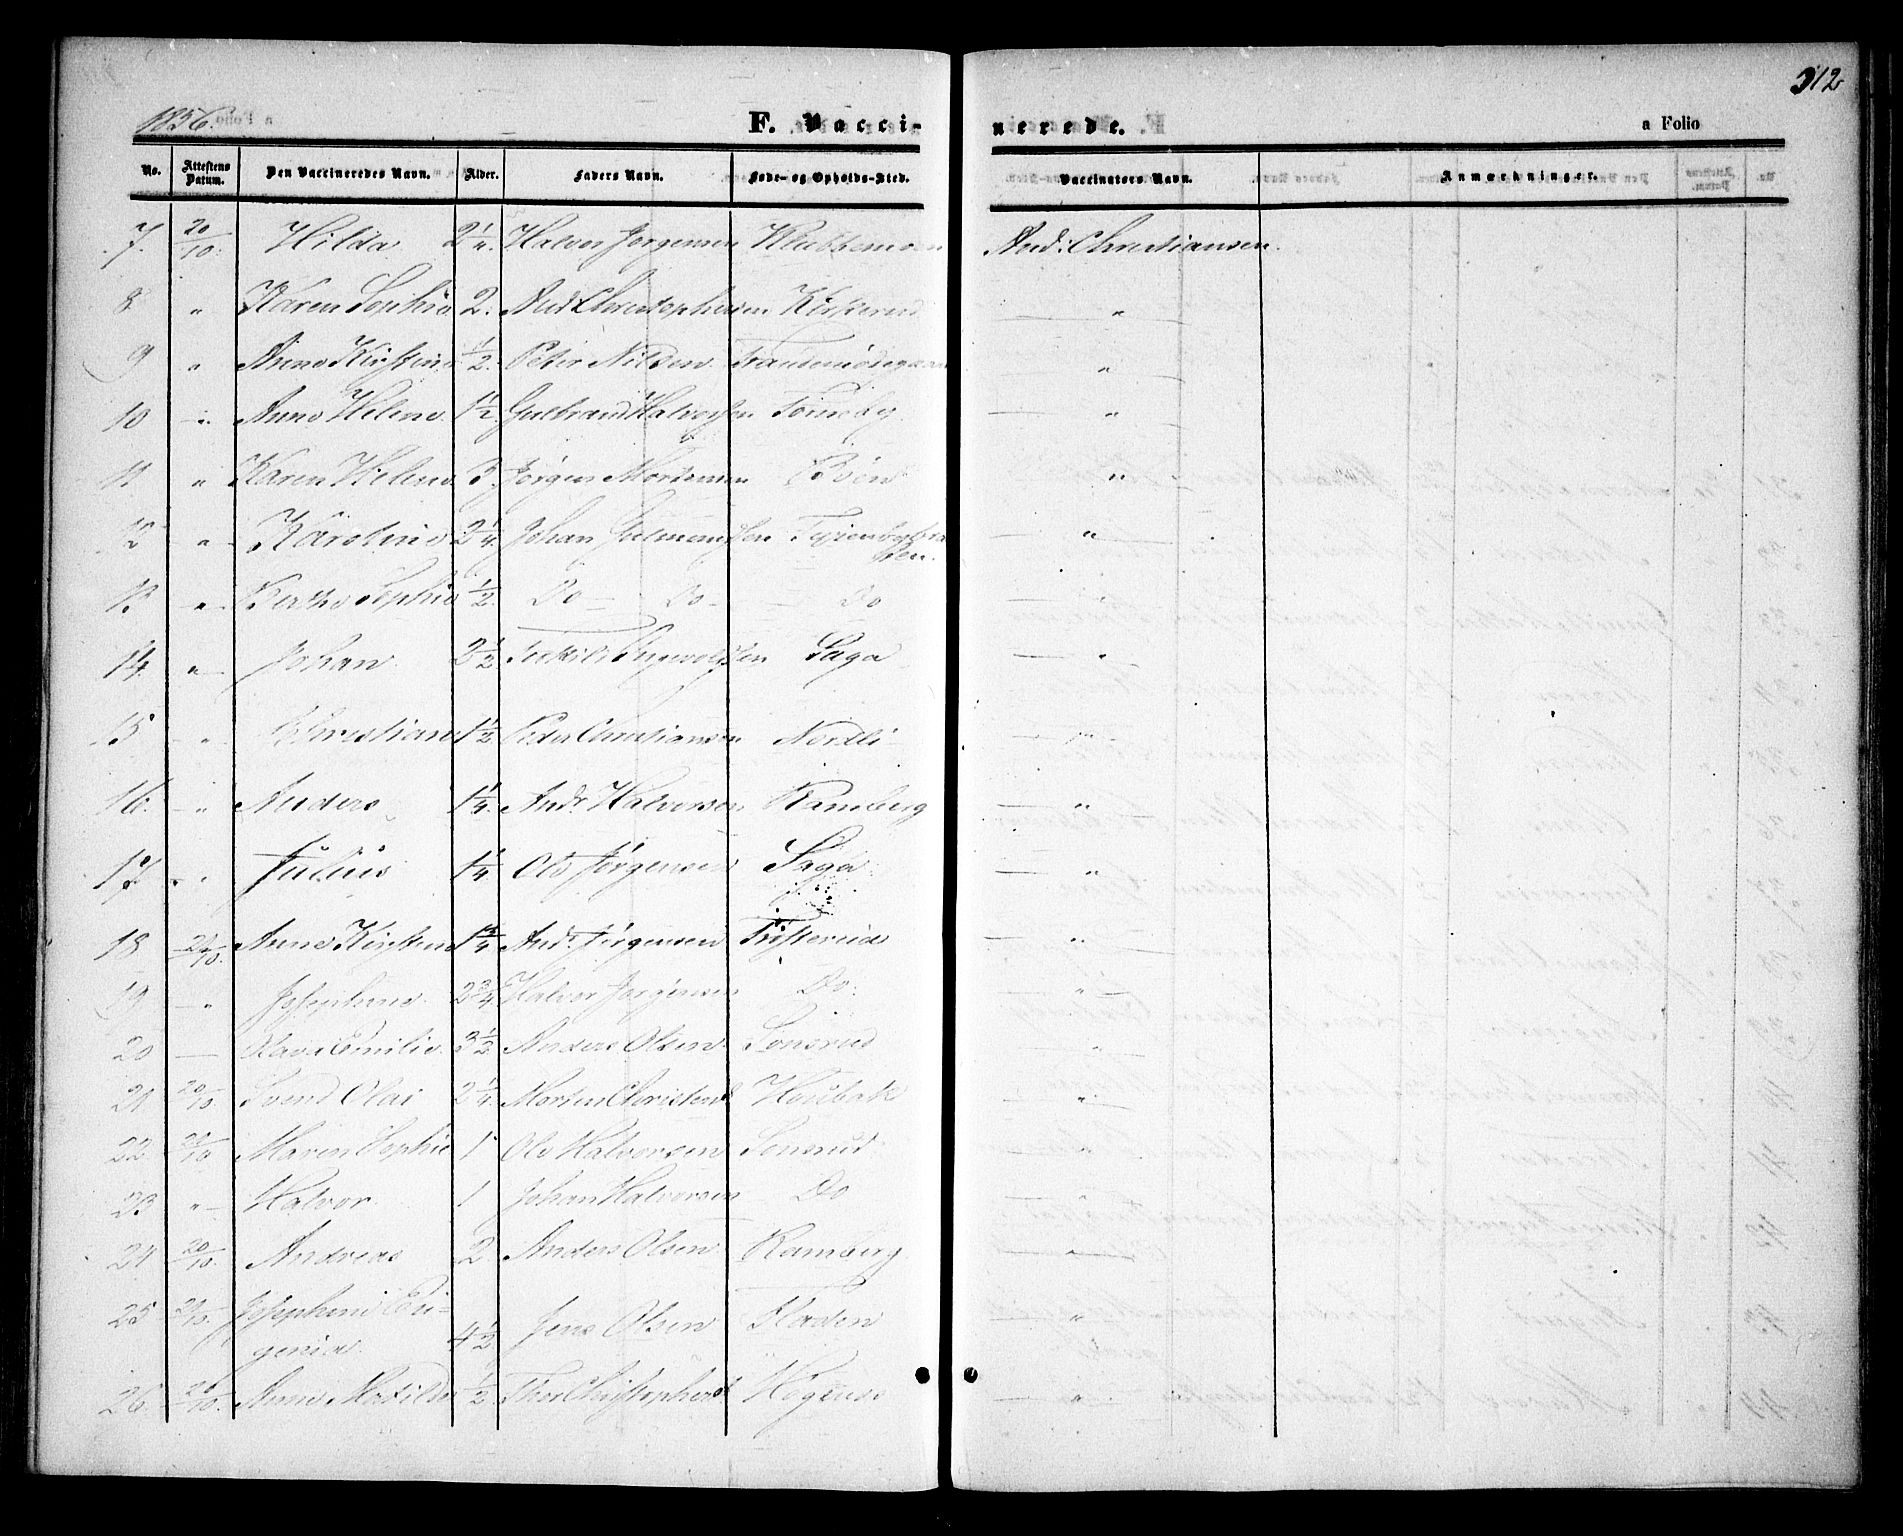 312
1856.
F. Vacci- nerede. a Folio
No. Attestens Datum. Den Vaccineredes Navn. Alder. Faders Navn. Føde- og Opholds-Sted. Vaccinators Navn. Anmærkninger.
7. 20/10. Hilda 2 1/4. Halvor Jørgensen And: Christiansen.
8 " Karen Sophie 2. And: Christophersen Kirkerud "
9 " Anne Kirstine 1/2. Peter Nilsen "
10 " Anne Helene. 1 1/2. Gulbrand Halvorsen Tørresby. "
11 " Karen Helene. 3. Jørgen Mortensen Bøn "
12 " Karoline 2 1/4. Johan "
13. " Berthe Sophie 1/2. Do Do Do "
14. " Johan 2 1/2 Saga "
15 " Christiane 1 1/2 Peder Christiansen Nordli "
16. " Anders 1 1/4. Andr. Halvorsen Ramberg "
17. " Julius 1 1/4. Ole Jørgensen Saga "
18 21/10. Anne Kirstine 1 3/4 Andr. Jørgensen "
19 " Josephine. 2 3/4 Halvor Jørgensen Do. "
20 — Olava Emilie. 3 1/2 Anders Olsen Sonsrud "
21 20/10. Svend Olai 2 1/4. Morten Christens "
22 20/10 Maren Sophie 1 Ole Halvorsen Sonsrud "
23 " Halvor. 1 Johan Halvorsen Do "
24 20/10. Andreas 2. Anders Olsen Ramberg "
25 20/10. Josephine Eu-
genia. 4 1/2 Jens Olsen Floden "
26. 20/10. Anne Matilde 1/2 Thor Christophers "